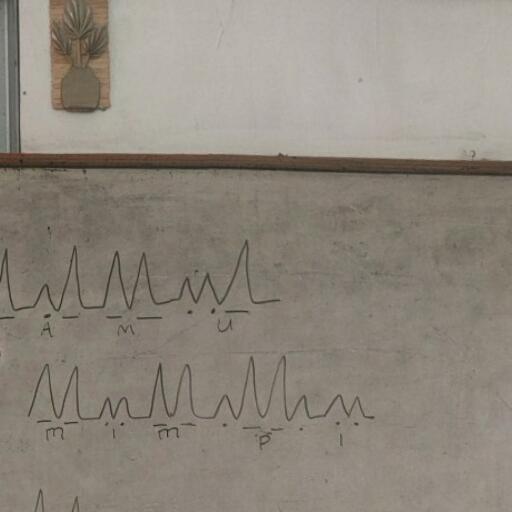 A M U
m i m p i